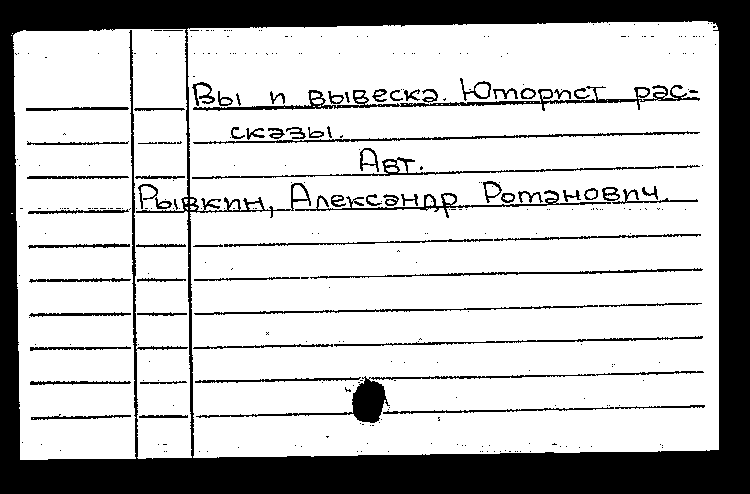 Вы и вывеска. Юморист рас-
сказы.
Авт.
Рывкин, Александр Романович.